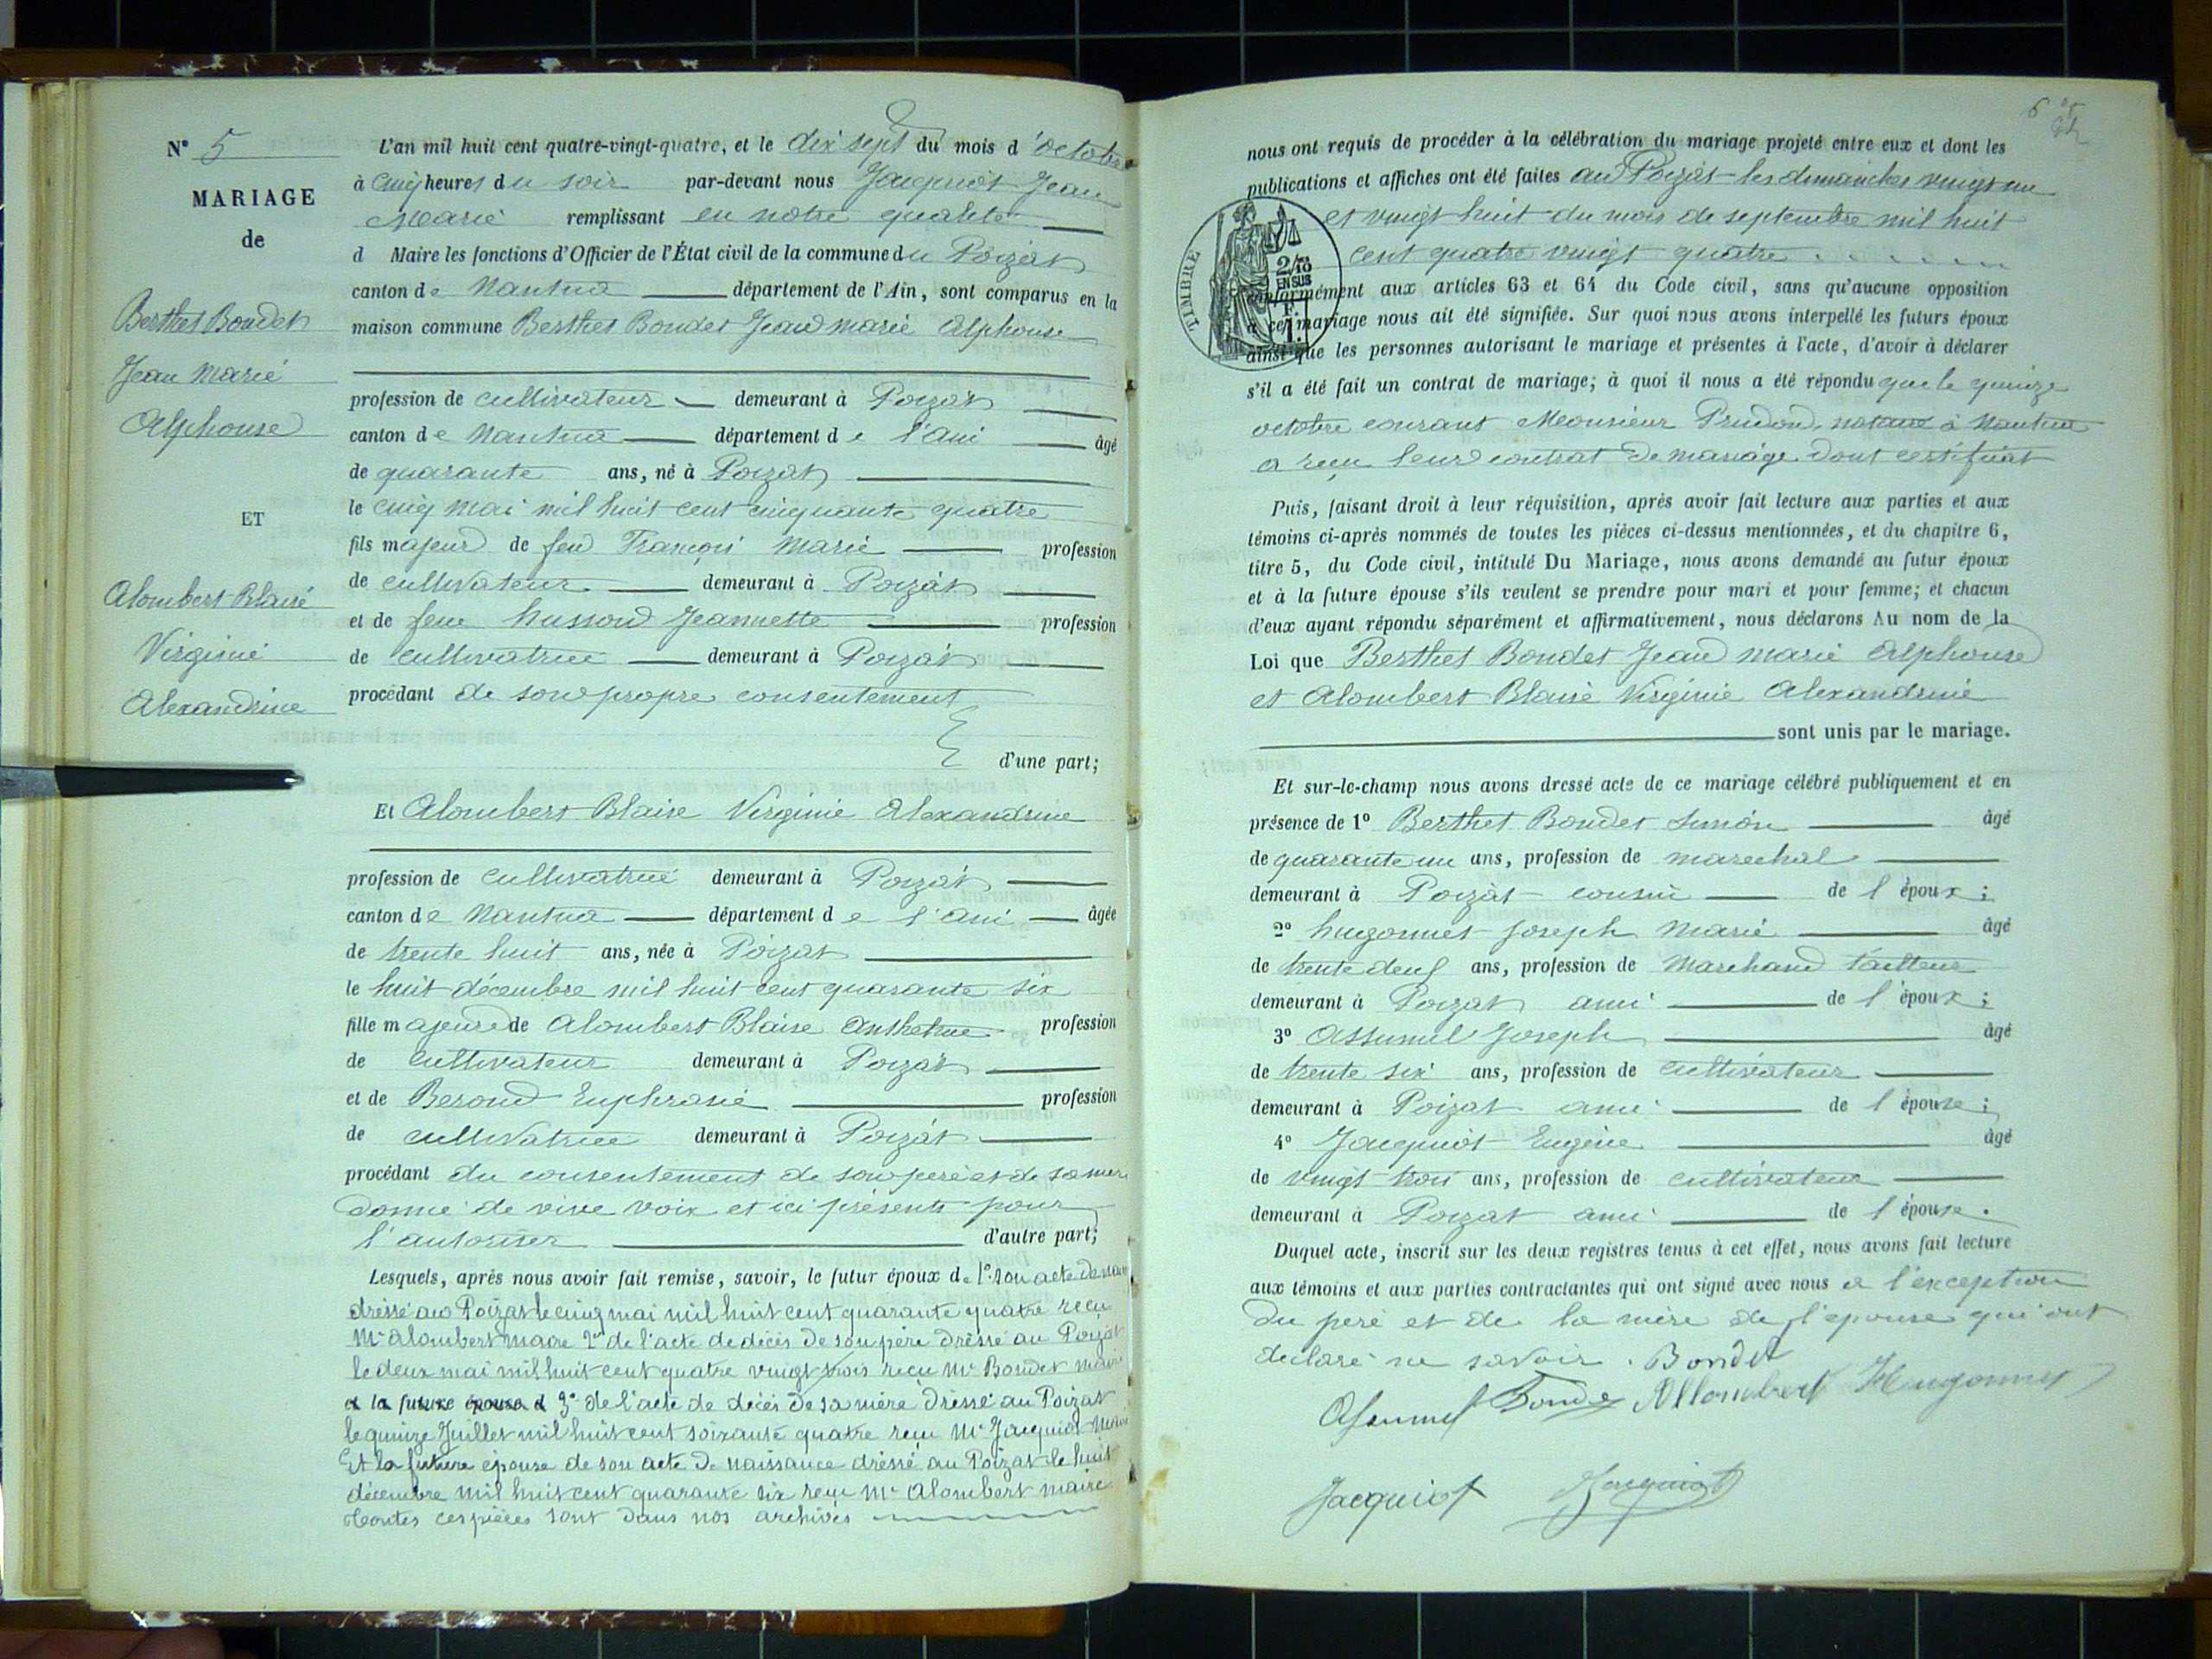 N° 5
MARIAGE
de
Berthet Bondet
Jean Marie
Alphonse
ET
Alombert Blaise
Virginie
Alexandrine
L'an mil huit cent quatre-vingt-quatre, et le dix sept du mois d'octobre
à cinq heures du soir par-devant nous Jacquiot Jean
Marie remplissant en notre qualité
d Maire les fonctions d'Officier de l'État civil de la commune du Poizat
canton de Nantua département de l'Ain, sont comparus en la
maison commune Berthet Bondet Jean marie Alphonse
profession de cultivateur demeurant à Poizat
canton de Nantua département de l'ain âgé
de quarante ans, né à Poizat
le cinq mai mil huit cent cinquante quatre
fils majeur de feu François Marie profession
de cultivateur demeurant à Poizat
et de feue husson Jeannette profession
de cultivatrice demeurant à Poizat
procédant de son propre consentement
d'une part;
Et Alombert Blaise Virginie Alexandrine
profession de cultivatrice demeurant à Poizat
canton de Nantua département de l'ain âgée
de trente huit ans, née à Poizat
le huit décembre mil huit cent quarante six
fille majeure de Alombert Blaise Anthelme profession
de cultivateur demeurant à Poizat
et de Beroud Euphrasie profession
de cultivatrice demeurant à Poizat
procédant du consentement de son père et de sa mère
donné de vive voix et ici présents pour
l'autoriser d'autre part;
Lesquels, après nous avoir fait remise, savoir, le futur époux de 1° son acte de
dréssé au Poizat le cinq mai mil huit cent quarante quatre reçu
Mr Alombert maire 2° de l'acte de décès de son père dréssé au Poizat
le deux mai mil huit cent quatre vingt trois reçu Mr Bondet maire
et la future épouse d 3° de l'acte de décès de sa mère dréssé au Poizat
le quinze Juillet mil huit cent soixante quatre reçu Mr Jacquiot Maire
Et la future épouse de son acte de naissance dréssé au Poizat le huit
décembre mil huit cent quarante six reçu Mr Alombert maire
toutes ces pièces sont dans nos archives
nous ont requis de procéder à la célébration du mariage projeté entre eux et dont les
publications et affiches ont été faites au Poizat les dimanches vingt un
et vingt huit du mois de septembre mil huit
cent quatre vingt quatre
TIMBRE
2/10
EN SUS
F.
1.
conformément aux articles 63 et 64 du Code civil, sans qu'aucune opposition
à cet mariage nous ait été signifiée. Sur quoi nous avons interpellé les futurs époux
ainsi que les personnes autorisant le mariage et présentes à l'acte, d'avoir à déclarer
s'il a été fait un contrat de mariage; à quoi il nous a été répondu que le quinze
octobre courant Monsieur Prudon, notaire à Nantua
a reçu leur contrat de mariage dont certificat
Puis, faisant droit à leur réquisition, après avoir fait lecture aux parties et aux
témoins ci-après nommés de toutes les pièces ci-dessus mentionnées, et du chapitre 6,
titre 5, du Code civil, intitulé Du Mariage, nous avons demandé au futur époux
et à la future épouse s'ils veulent se prendre pour mari et pour femme; et chacun
d'eux ayant répondu séparément et affirmativement, nous déclarons Au nom de la
Loi que Berthet Bondet Jean marie Alphonse
et Alombert Blaise Virginie Alexandrine
sont unis par le mariage.
Et sur-le-champ nous avons dressé acte de ce mariage célébré publiquement et en
présence de 1° Berthet Bondet Simon âgé
de quarante un ans, profession de marechal
demeurant à Poizat cousin de l'époux;
2° hugonnet Joseph Marie âgé
de trente deux ans, profession de Marchand tailleur
demeurant à Poizat ami de l'époux;
3° Assumel Joseph âgé
de trente six ans, profession de cultivateur
demeurant à Poizat ami de l'épouse;
4° Jacquiot Eugène âgé
de vingt trois ans, profession de cultivateur
demeurant à Poizat ami de l'épouse.
Duquel acte, inscrit sur les deux registres tenus à cet effet, nous avons fait lecture
aux témoins et aux parties contractantes qui ont signé avec nous à l'exception
du père et de la mère de l'épouse qui ont
déclaré ne savoir. Bondet
Asumel Bondet Allombert Hugonnet
Jacquiot Jacquiot